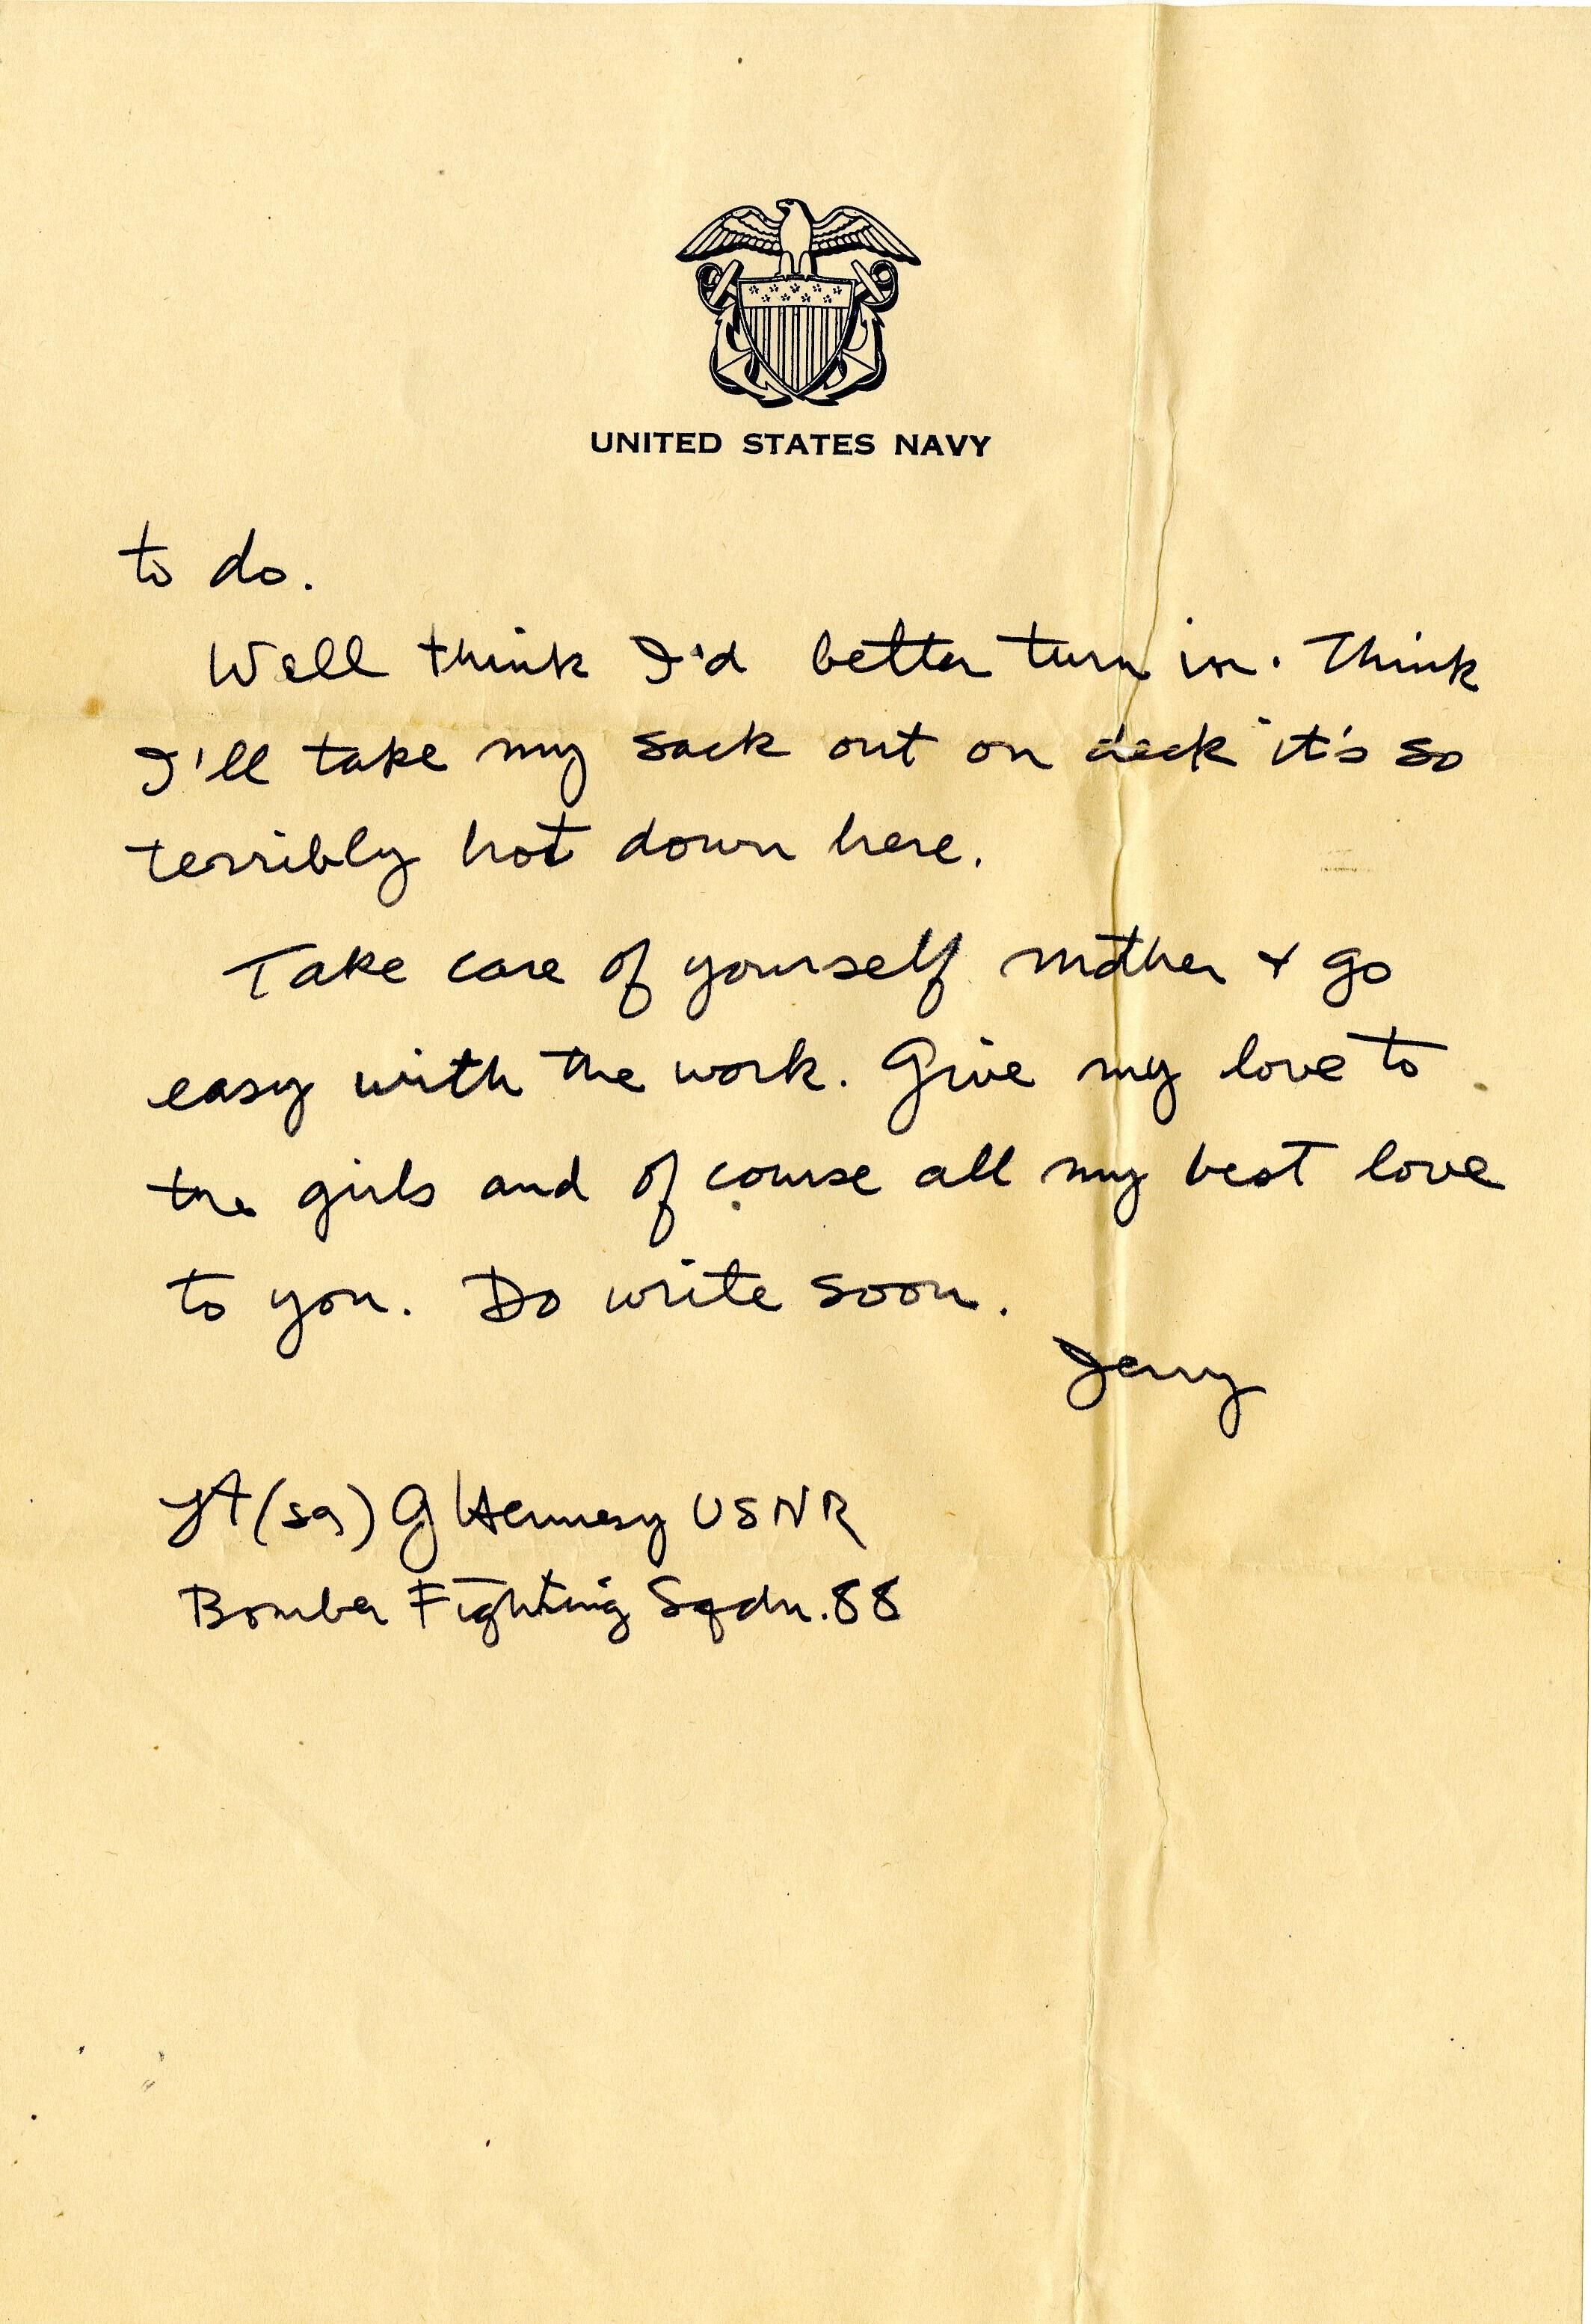 UNITED STATES NAVY
to do.
Well think I'd better turn in. Think
I'll take my sack out on deck it's so
terribly hot down here.
Take care of yourself mother + go
easy with the work. Give my love to
the girls and of course all my best love
to you. Do write soon.
Jerry
Lt (sg) G Hennesy USNR
Bomber Fighting Sqdn. 88